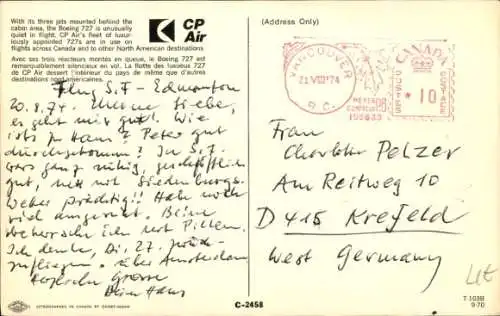 With its three jets mounted behind the
cabin area, the Boeing 727 is unusually
quiet in flight. CP Air's fleet of luxur-
iously appointed 727s are in use on
flights across Canada and to other North American destinations
Avec ses trois réacteurs montés en queue, le Boeing 727 est
remarquablement silencieux en vol. La flotte des luxueux 727
de CP Air dessert l'intérieur du pays de même que d'autres
destinations nord américaines.
CP
Air
(Address Only)
VANCOUVER
B.C.
CANADA
POSTES
POSTAGE
10
Flug S.F. - Edmonton
20.8.74. Meine Liebe,
es geht mir gut! Wie
ists zu Haus? Peter gut
durchgekommen? In S.F.
wars ganz ruhig, geschäftlich
gut, nett mit Siedenburgs.
Wetter prächtig!! Habe noch
viel
Ich denke, Di. 27.
zufliegen. über Amsterdam
Herzliche Grüsse
Dein Hans
Frau
Charlotte Pelzer
Am Reitweg 10
D 415 Krefeld
West Germany
C-2458
T 103B
9-70